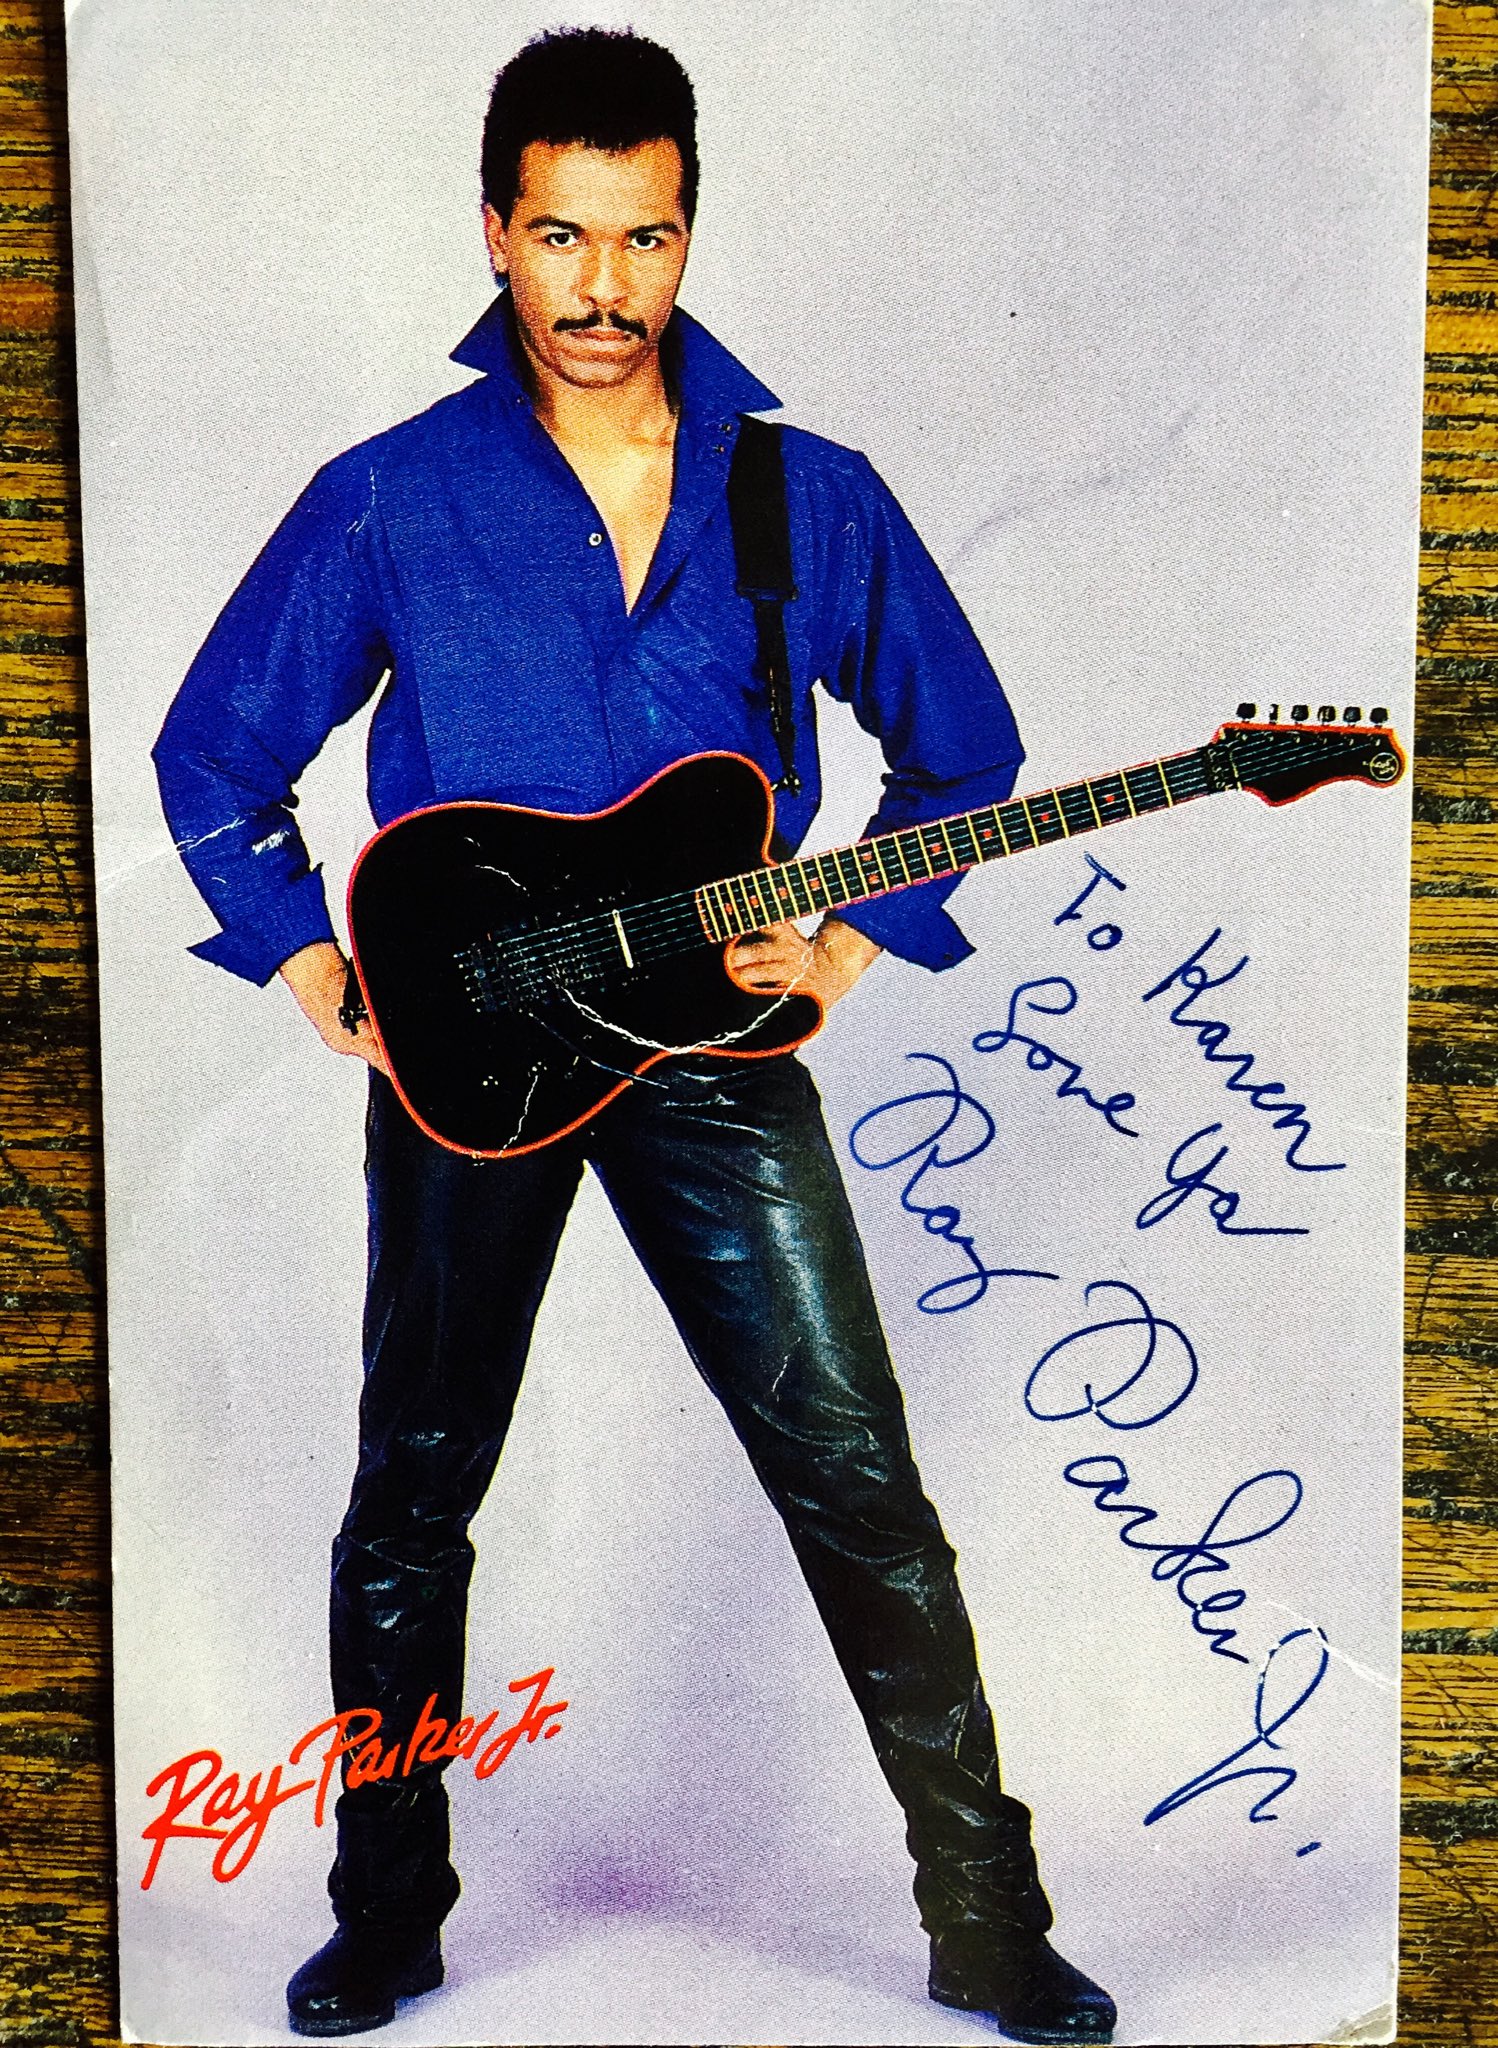 To Karen
Love Ya
Ray Parker Jr.
Ray Parker Jr.